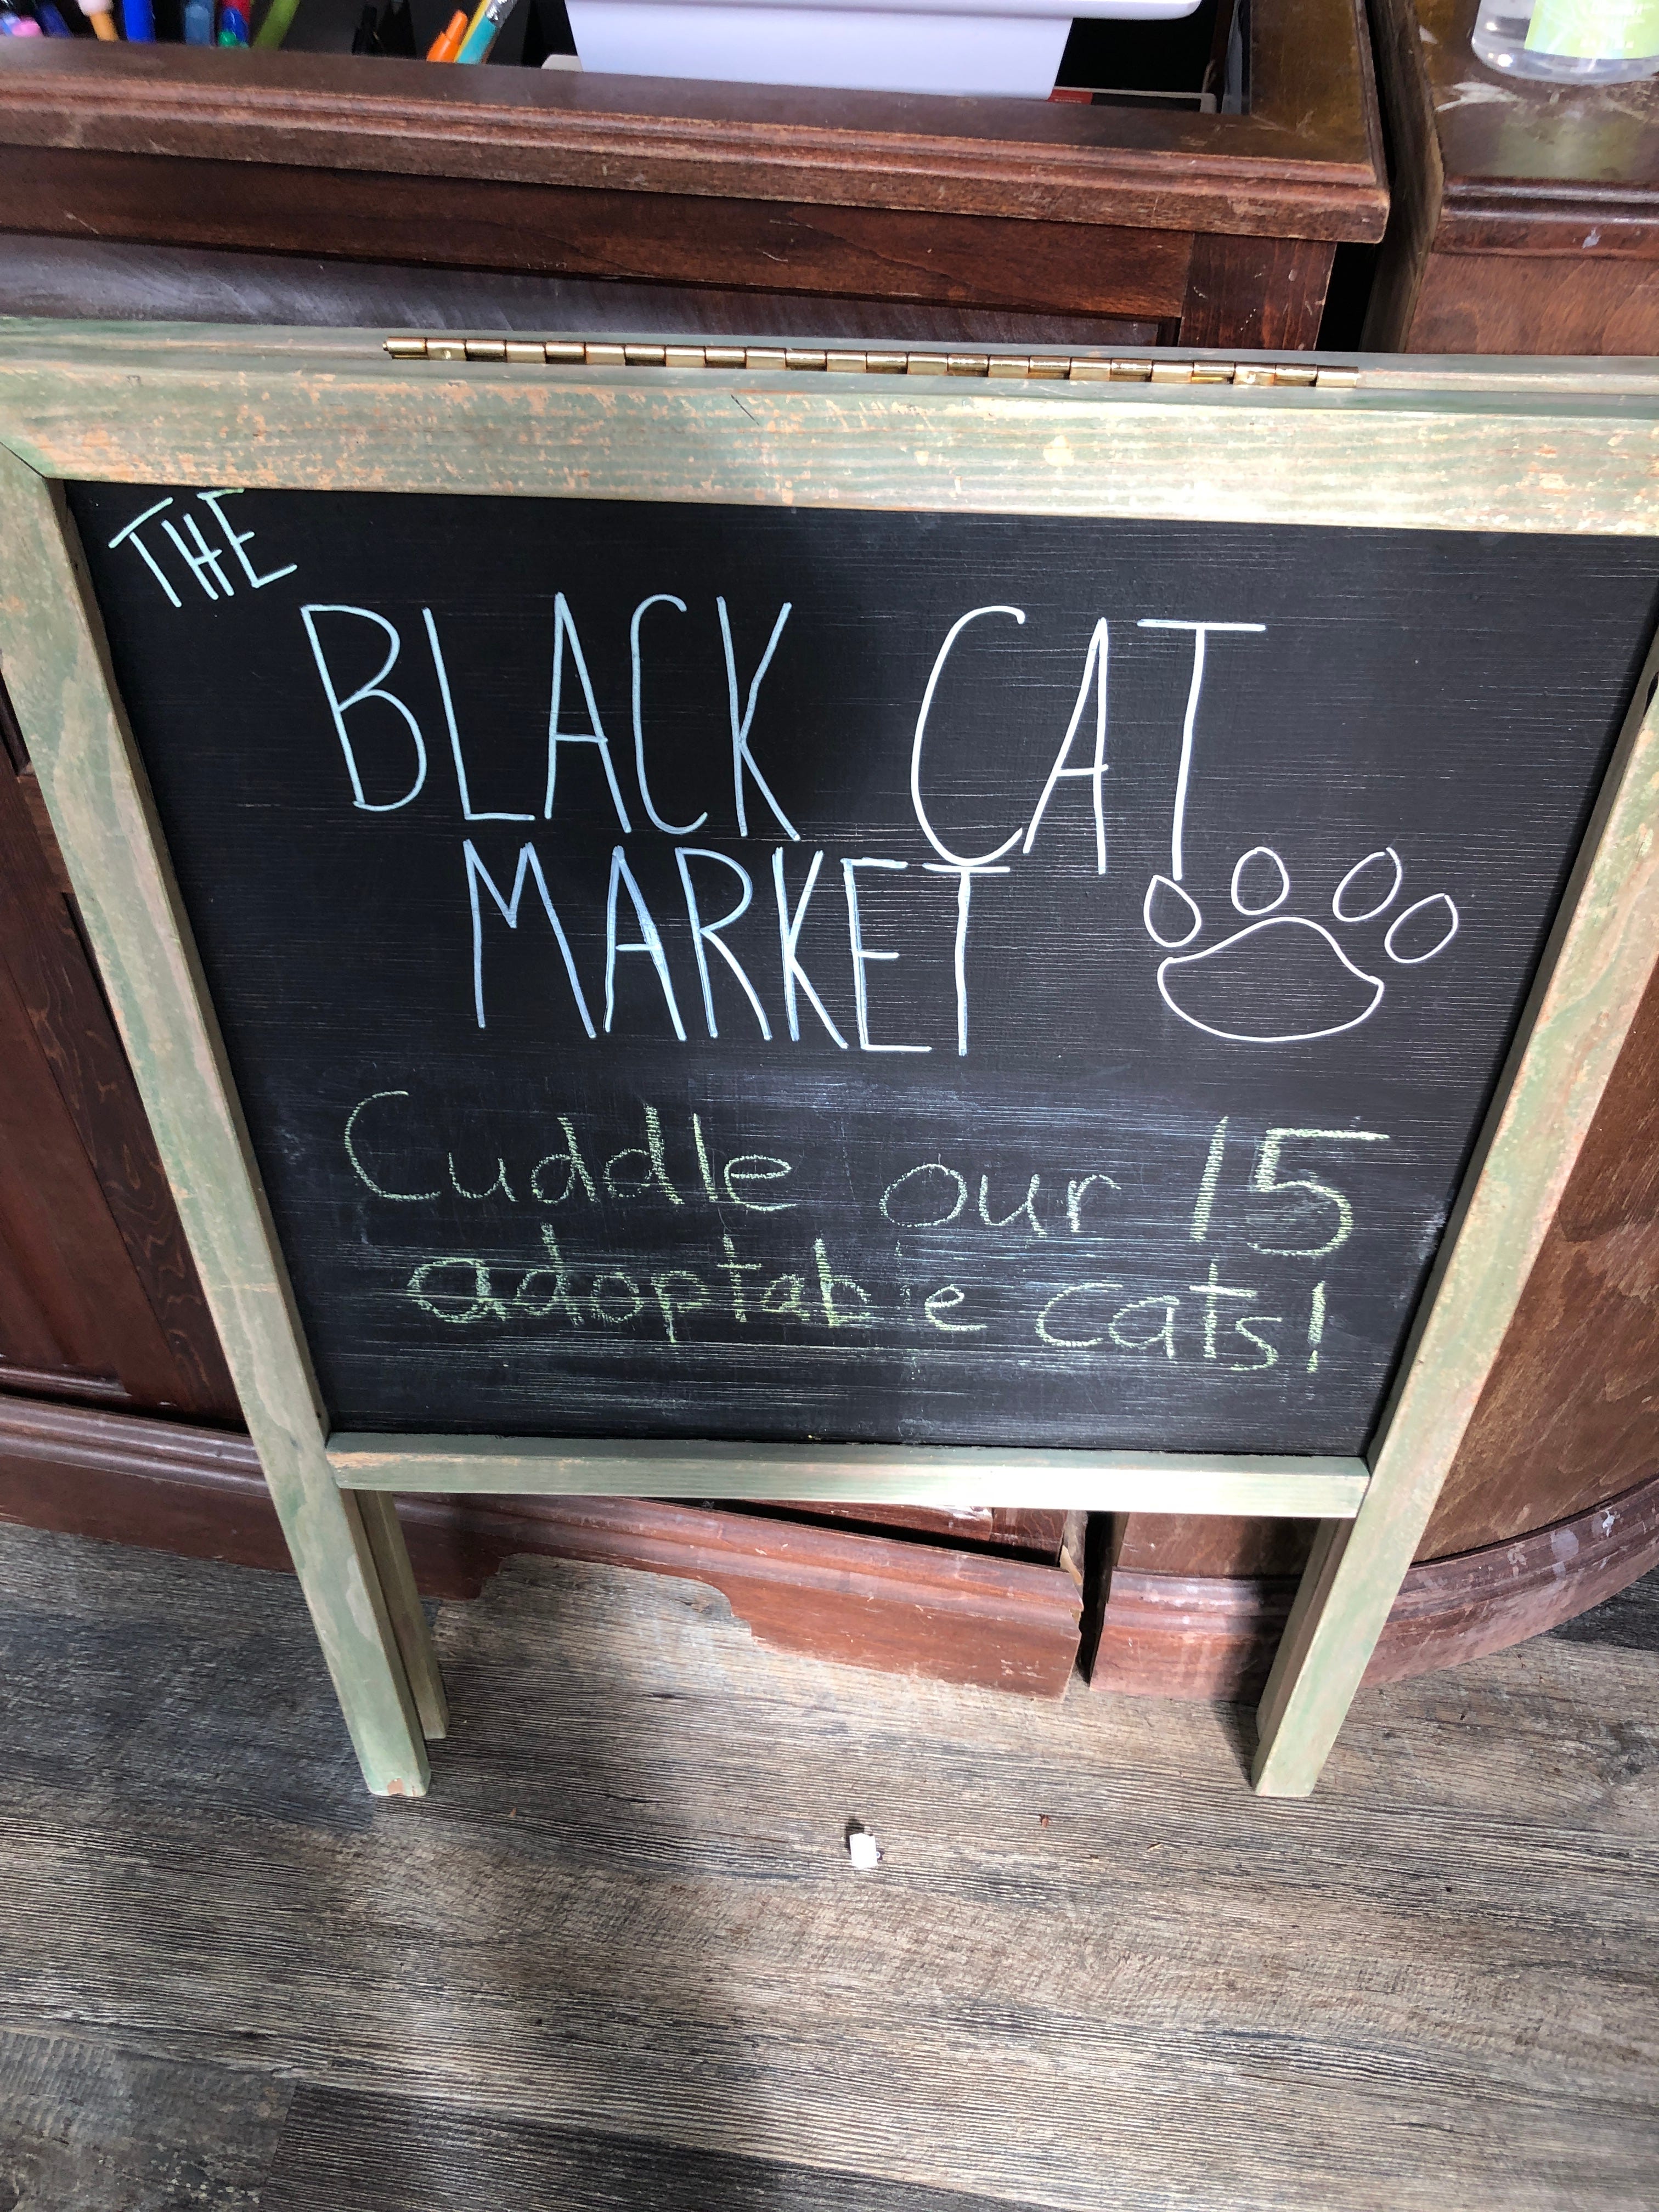 THE
BLACK CAT
MARKET
Cuddle our 15
adoptable cats!